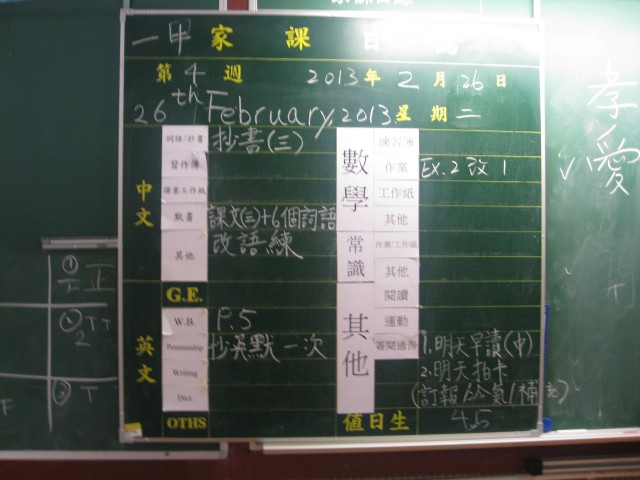 一甲 家課日
第 4 週 2013 年 2 月 26 日
26th February, 2013 星期 二
中文
詞語/抄書 抄書(三)
習作簿
課業工作紙
默書 課文(三)+6個詞語
其他 改語練
數學
練習簿
作業 EX.2 改 1
工作紙
其他
常識
作業/工作紙
其他
G.E.
英文
W.B. P.5
Penmanship 抄英默一次
Writing
Dict.
OTHS
其他
閱讀
運動
簽閱通告 1.明天早讀(中)
2.明天拍卡
值日生 4,5
孝
愛
① 正
② T T
2
③ T